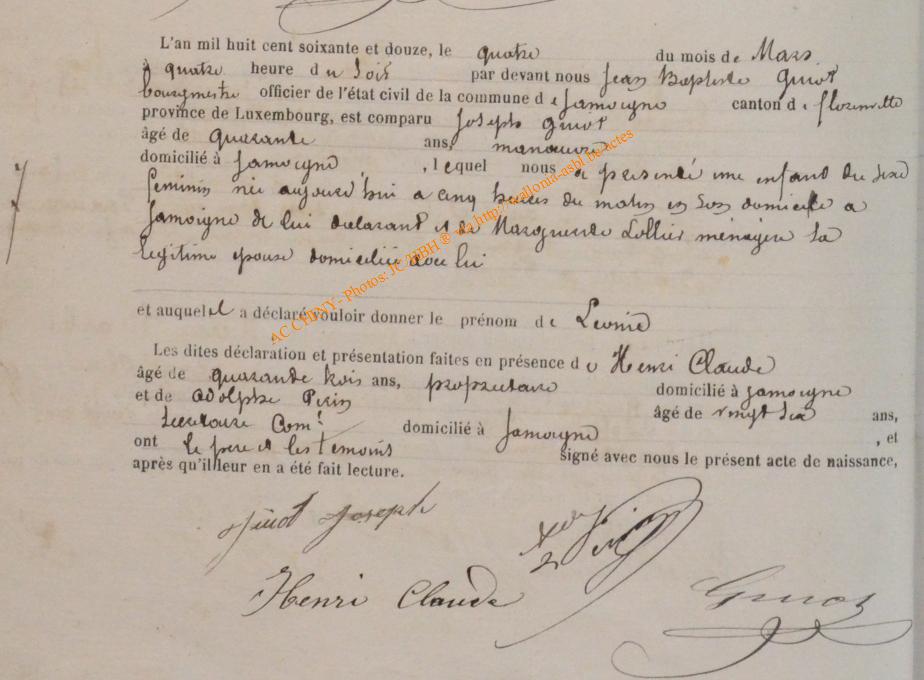 L'an mil huit cent soixante et douze, le quatre du mois de Mars
à quatre heure du soir par devant nous Jean Baptiste Guiot
bourgmestre officier de l'état civil de la commune de Jamoigne canton de florenville
province de Luxembourg, est comparu Joseph Guiot
âgé de quarante ans, manoeuvre
domicilié à Jamoigne , lequel nous a présenté une enfant du sexe
feminin née aujourd'hui a cinq heures du matin en son domicile a
Jamoigne de lui déclarant et de Marguerite Lollier ménagère sa
legitime epouse domiciliée avec lui
et auquel il a déclaré vouloir donner le prénom de Leonie
Les dites déclaration et présentation faites en présence de Henri Claude
âgé de quarante trois ans, propretaire domicilié à jamoigne
et de adolphe Pirin âgé de vingt six ans,
Com.l domicilié à Jamoigne , et
ont le pere et les temoins signé avec nous le présent acte de naissance,
après qu'il leur en a été fait lecture.
Guiot Joseph
Henri Claude
Guiot
AC CHINY - Photos: JC TBBH ® via http://wallonia-asbl.be/actes